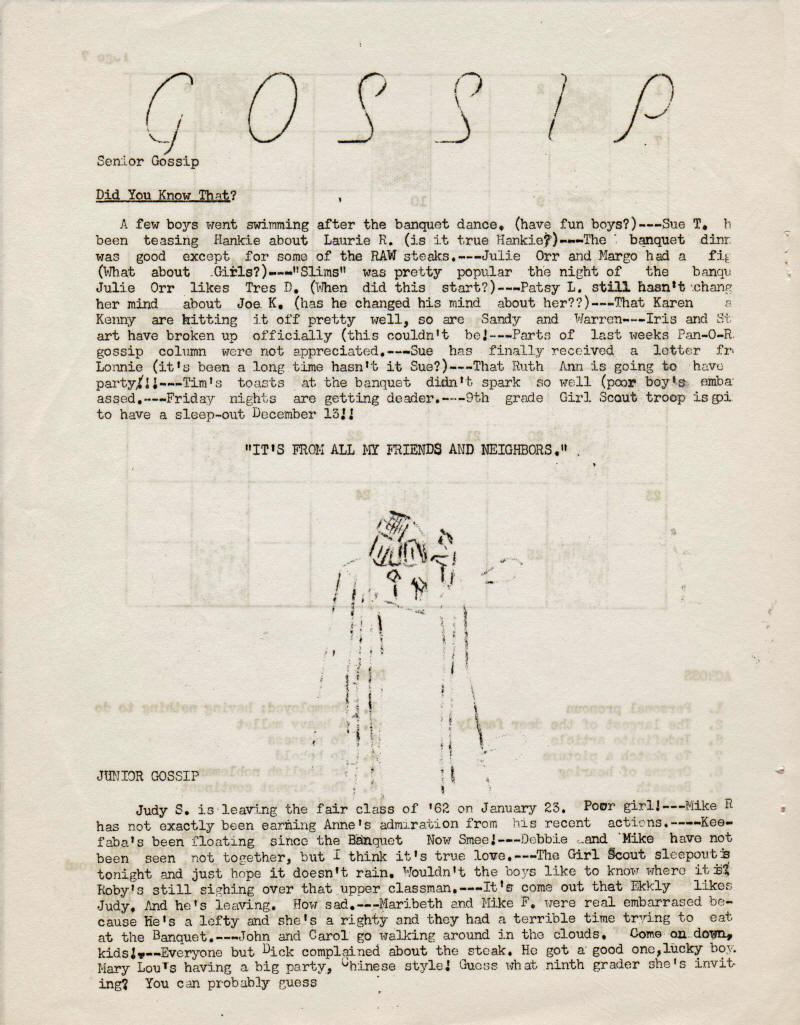 GOSSIP
Senior Gossip
Did You Know That?
A few boys went swimming after the banquet dance. (have fun boys?)---Sue T. h
been teasing Hankie about Laurie R. (is it true Hankie?)---The banquet dinn
was good except for some of the RAW steaks.---Julie Orr and Margo had a fig
(What about Girls?)---"Slims" was pretty popular the night of the banqu
Julie Orr likes Tres D. (When did this start?)---Patsy L. still hasn't chang
her mind about Joe K. (has he changed his mind about her??)---That Karen a
Kenny are hitting it off pretty well, so are Sandy and Warren---Iris and St
art have broken up officially (this couldn't be!---Parts of last weeks Pan-O-R.
gossip column were not appreciated.---Sue has finally received a letter fr
Lonnie (it's been a long time hasn't it Sue?)---That Ruth Ann is going to have
party!!!---Tim's toasts at the banquet didn't spark so well (poor boy's emba
assed.---Friday nights are getting deader.---9th grade Girl Scout troop is goi
to have a sleep-out December 13!!
"IT'S FROM ALL MY FRIENDS AND NEIGHBORS."
JUNIOR GOSSIP
Judy S. is leaving the fair class of '62 on January 23. Poor girl!---Mike R
has not exactly been earning Anne's admiration from his recent actions.----Kee-
faba's been floating since the Banquet Now Smee!---Debbie and Mike have not
been seen not together, but I think it's true love.---The Girl Scout sleepout is
tonight and just hope it doesn't rain. Wouldn't the boys like to know where it is?
Roby's still sighing over that upper classman.---It's come out that Ekkly likes
Judy. And he's leaving. How sad.---Maribeth and Mike F. were real embarrased be-
cause He's a lefty and she's a righty and they had a terrible time trying to eat
at the Banquet.---John and Carol go walking around in the clouds. Come on down,
kids!---Everyone but Dick complained about the steak. He got a good one,lucky boy.
Mary Lou's having a big party, Chinese style! Guess what ninth grader she's invit-
ing? You can probably guess